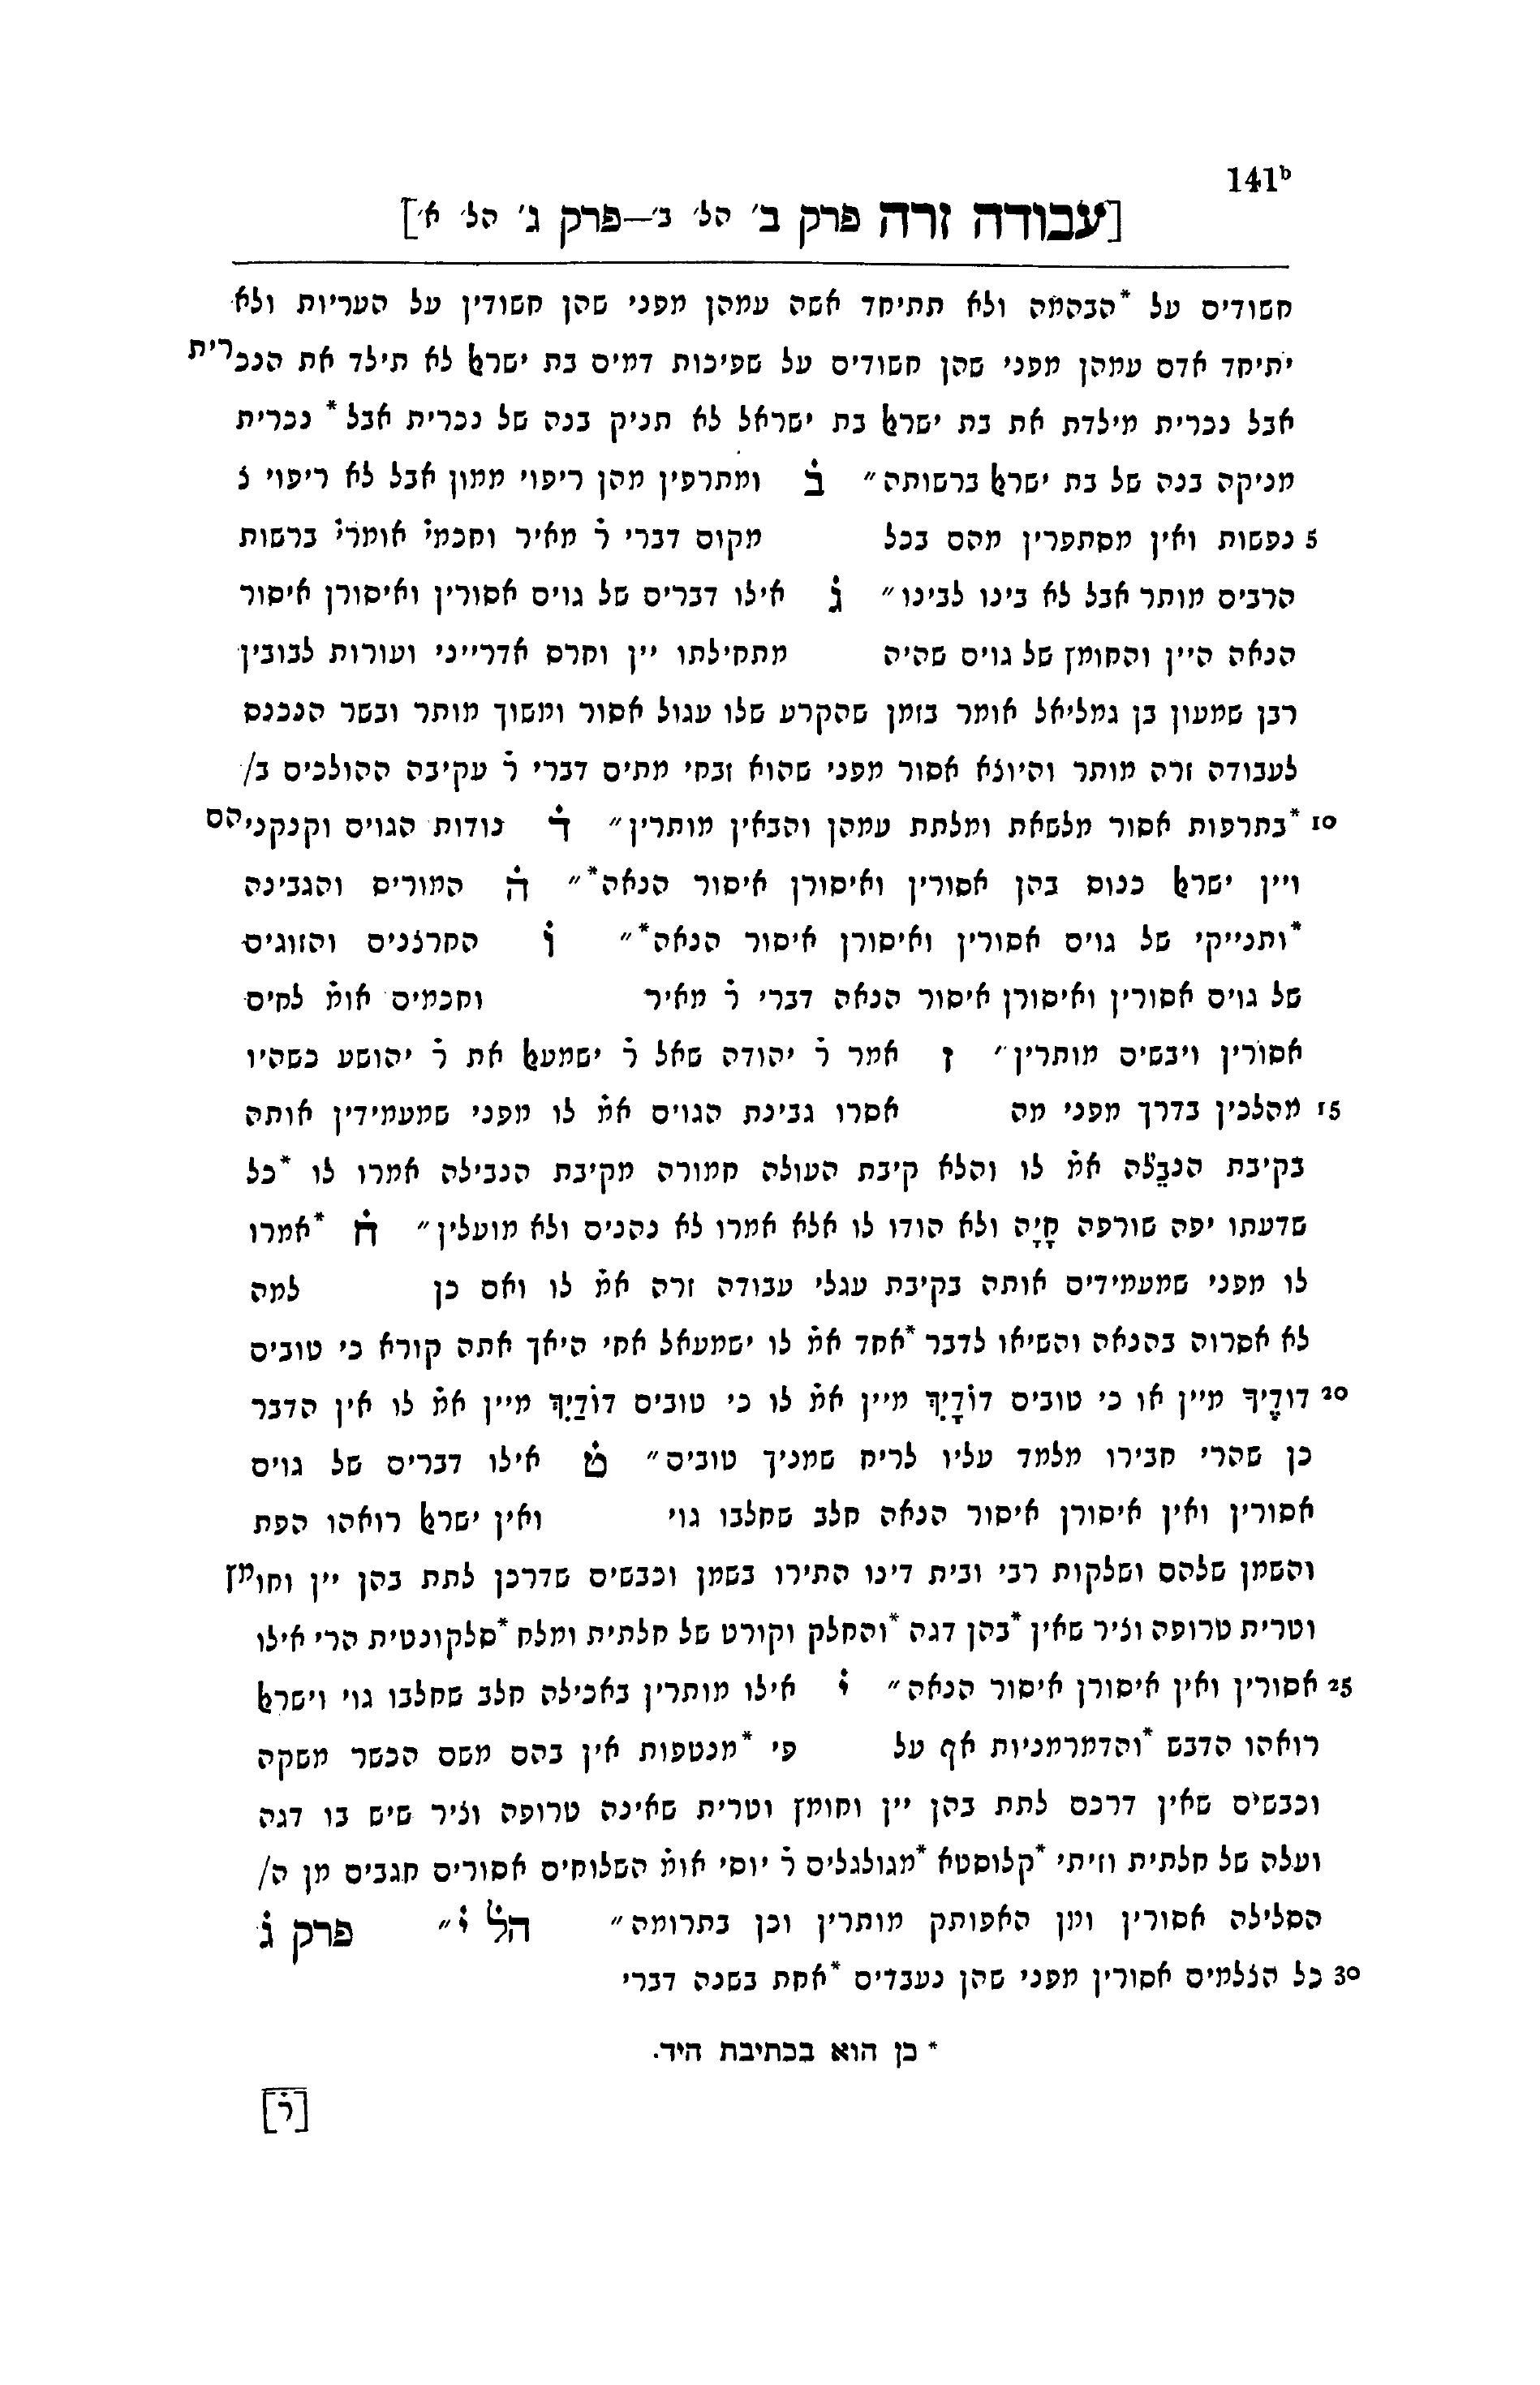 141b
[עבודה זרה פרק ב' הל' ב'—פרק ג' הל' א']
חשודים על *הבהמה ולא תתיחד אשה עמהן מפני שהן חשודין על העריות ולא
יתיחד אדם עמהן מפני שהן חשודים על שפיכות דמים בת ישרﭏ לא תילד את הנכרית
אבל נכרית מילדת את בת ישרﭏ בת ישראל לא תניק בנה של נכרית אבל * נכרית
מניקה בנה של בת ישרﭏ ברשותה״ בׄ ומתרפין מהן ריפוי ממון אבל לא ריפוי נ
5 נפשות ואין מסתפרין מהם בכל מקום דברי רׄ מאיר וחכמיׄ אומריׄ ברשות
הרבים מותר אבל לא בינו לבינו״ גׄ אילו דברים של גוים אסורין ואיסורן איסור
הנאה היין והחומץ של גוים שהיה מתחילתו יין וחרס אדרייני ועורות לבובין
רבן שמעון בן גמליאל אומר בזמן שהקרע שלו עגול אסור ומשוך מותר ובשר הנכנס
לעבודה זרה מותר והיוצא אסור מפני שהוא זבחי מתים דברי רׄ עקיבה ההולכים ב/
10 *בתרפות אסור מלשאת ומלתת עמהן והבאין מותרין״ דׄ נודות הגוים וקנקניהם
ויין ישרﭏ כנוס בהן אסורין ואיסורן איסור הנאה*״ הׄ המוריס והגבינה
*ותנייקי של גוים אסורין ואיסורן איסור הנאה*״ וׄ החרצנים והזוגים
של גוים אסורין ואיסורן איסור הנאה דברי רׄ מאיר וחכמים אומׄ לחים
אסורין ויבשים מותרין״ ז אמר רׄ יהודה שאל רׄ ישמעﭏ את רׄ יהושע כשהיו
15 מהלכין בדרך מפני מה אסרו גבינת הגוים אמׄ לו מפני שמעמידין אותה
בקיבת הנבֵלה אמׄ לו והלא קיבת העולה חמורה מקיבת הנבילה אמרו לו *כל
שדעתו יפה שורפה חָיָה ולא הודו לו אלא אמרו לא נהנים ולא מועלין״ חׄ *אמרו
לו מפני שמעמידים אותה בקיבת עגלי עבודה זרה אמׄ לו ואם כן למה
לא אסרוה בהנאה והשיאו לדבר *אחד אמׄ לו ישמעאל אחי היאך אתה קורא כי טובים
20 דודֶיך מיין או כי טובים דוֹדָיִךְ מיין אמׄ לו כי טובים דוֹדַיִךְ מיין אמׄ לו אין הדבר
כן שהרי חבירו מלמד עליו לריח שמניך טובים״ טׄ אילו דברים של גוים
אסורין ואין איסורן איסור הנאה חלב שחלבו גוי ואין ישרﭏ רואהו הפת
והשמן שלהם ושלקות רבי ובית דינו התירו בשמן וכבשים שדרכן לתת בהן יין וחומץ
וטרית טרופה וציר שאין *בהן דגה *והחלק וקורט של חלתית ומלח *סלקונטית הרי אילו
25 אסורין ואין איסורן איסור הנאה״ יׄ אילו מותרין באכילה חלב שחלבו גוי וישרﭏ
רואהו הדבש *והדמרמניות אף על פי *מנטפות אין בהם משם הכשר משקה
וכבשים שאין דרכם לתת בהן יין וחומץ וטרית שאינה טרופה וציר שיש בו דגה
ועלה של חלתית וזיתי *קלוסטא *מגולגלים רׄ יוסי אומׄ השלוחים אסורים חגבים מן ה/
הסלילה אסורין ומן האפותק מותרין וכן בתרומה״ הלׄ יׄ״ פרק גׄ
30 כל הצלמים אסורין מפני שהן נעבדים *אחת בשנה דברי
* כן הוא בכתיבת היד.
[רׄ]